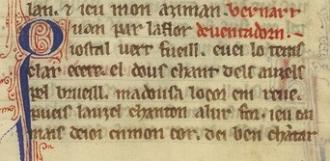 lan. & ieu mon aziman. bernart
Quan par la flor deuentadorn.
iostal uert fueill. e uei lo tems
clar e sere. el dous chant dels auzels
pel brueill. madousa lo cor em reue.
pueis lauzel chanton a lur for. ieu cui
mais de ioi en mon cor. dei ben chātar